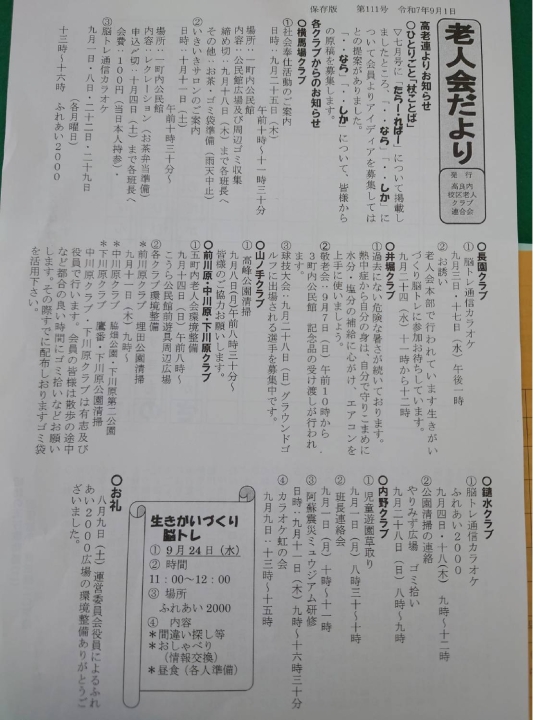 保存版　第111号　令和7年9月1日
老人会だより
発行
高良内
校区老人
クラブ
連合会
高老連よりお知らせ
〇ひとりごと「杖ことば」
▽七月号に「たら・・れば・・」について掲載し
ましたところ、「・・なら・・しか」に
ついて会員よりアイディアを募集しては
との提案がありました。
「・・なら・・しか」について、皆様から
の原稿を募集します。
各クラブからのお知らせ
〇横馬場クラブ
①社会奉仕活動のご案内
日時：九月二十五日（木）
午前十時～十一時三十分
場所：一町内公民館
内容：公民館広場及び周辺ゴミ収集
締め切り：九月十八日（木）まで各班長へ
その他：お茶・ゴミ袋準備（雨天中止）
②いきいきサロンのご案内
日時：十月十一日（土）
午前十時～十二時三十分
場所：一町内公民館
内容：レクレーション（お茶弁当準備）
申込〆切：十月四日（土）まで各班長へ
会費：100円（当日本人持参）・
③脳トレ通信カラオケ
九月一日・八日・二十二日・二十九日
（各月曜日）
十三時～十六時　ふれあい2000
〇長園クラブ
①脳トレ通信カラオケ
九月三日・十七日（水）午後一時
②お誘い
老人会本部で行われています生きがい
づくり脳トレに参加お待ちしています。
九月二十四（水）十一時から十二時
〇井堀クラブ
①過去にない危険な暑さが続いております。
熱中症から自分の身は、自分で守りこまめに
水分・塩分の補給に心がけ、エアコンを
上手に使いましょう。
②敬老会：９月７日（日）午前１０時から
３町内公民館　記念品の受け渡しが行われ
ます。
③球技大会：九月二十八日（日）グラウンドゴ
ルフに出場される選手を募集中です。
〇山ノ手クラブ
①高峰公園清掃
九月八日（月）午前八時三十分～
皆様のご協力お願いします。
〇前川原・中川原・下川原クラブ
①五町内老人会環境整備
九月十四日（日）午前八時～
こうら公民館前遊具周辺広場
②各クラブ環境整備
＊前川原クラブ　理田公園清掃
九月十一日（木）九時～
＊中川原クラブ　脇畑公園・下川原第二公園
＊下川原クラブ　鷹番・下川原公園清掃
中川原クラブ・下川原クラブは有志及び
役員で行います。会員の皆様は散歩の途中
など都合の良い時間にゴミ拾いなどお願い
します。その際すでに配布しおりますゴミ袋
を活用下さい。
〇鑓水クラブ
①脳トレ通信カラオケ
ふれあい2000
九月四日・十八（木）九時～十二時
②公園清掃の連絡
やりみず広場　ゴミ拾い
九月二十八日（日）八時～九時
〇内野クラブ
①児童遊園草取り
九月一日（月）八時三十～十時
②班長連絡会
九月一日（月）十時～十一時
③阿蘇震災ミュウジアム研修
日時：九月十一日（木）九時～十六時三十分
④カラオケ虹の会
九月九日：十三時～十五時
生きがいづくり
脳トレ
①　９月24日（水）
②　時間
11：00～12：00
③　場所
ふれあい2000
④　内容
＊間違い探し等
＊おしゃべり
（情報交換）
＊昼食（各人準備）
〇お礼
八月九日（土）運営委員会役員によるふれ
あい2000広場の環境整備ありがとうご
ざいました。